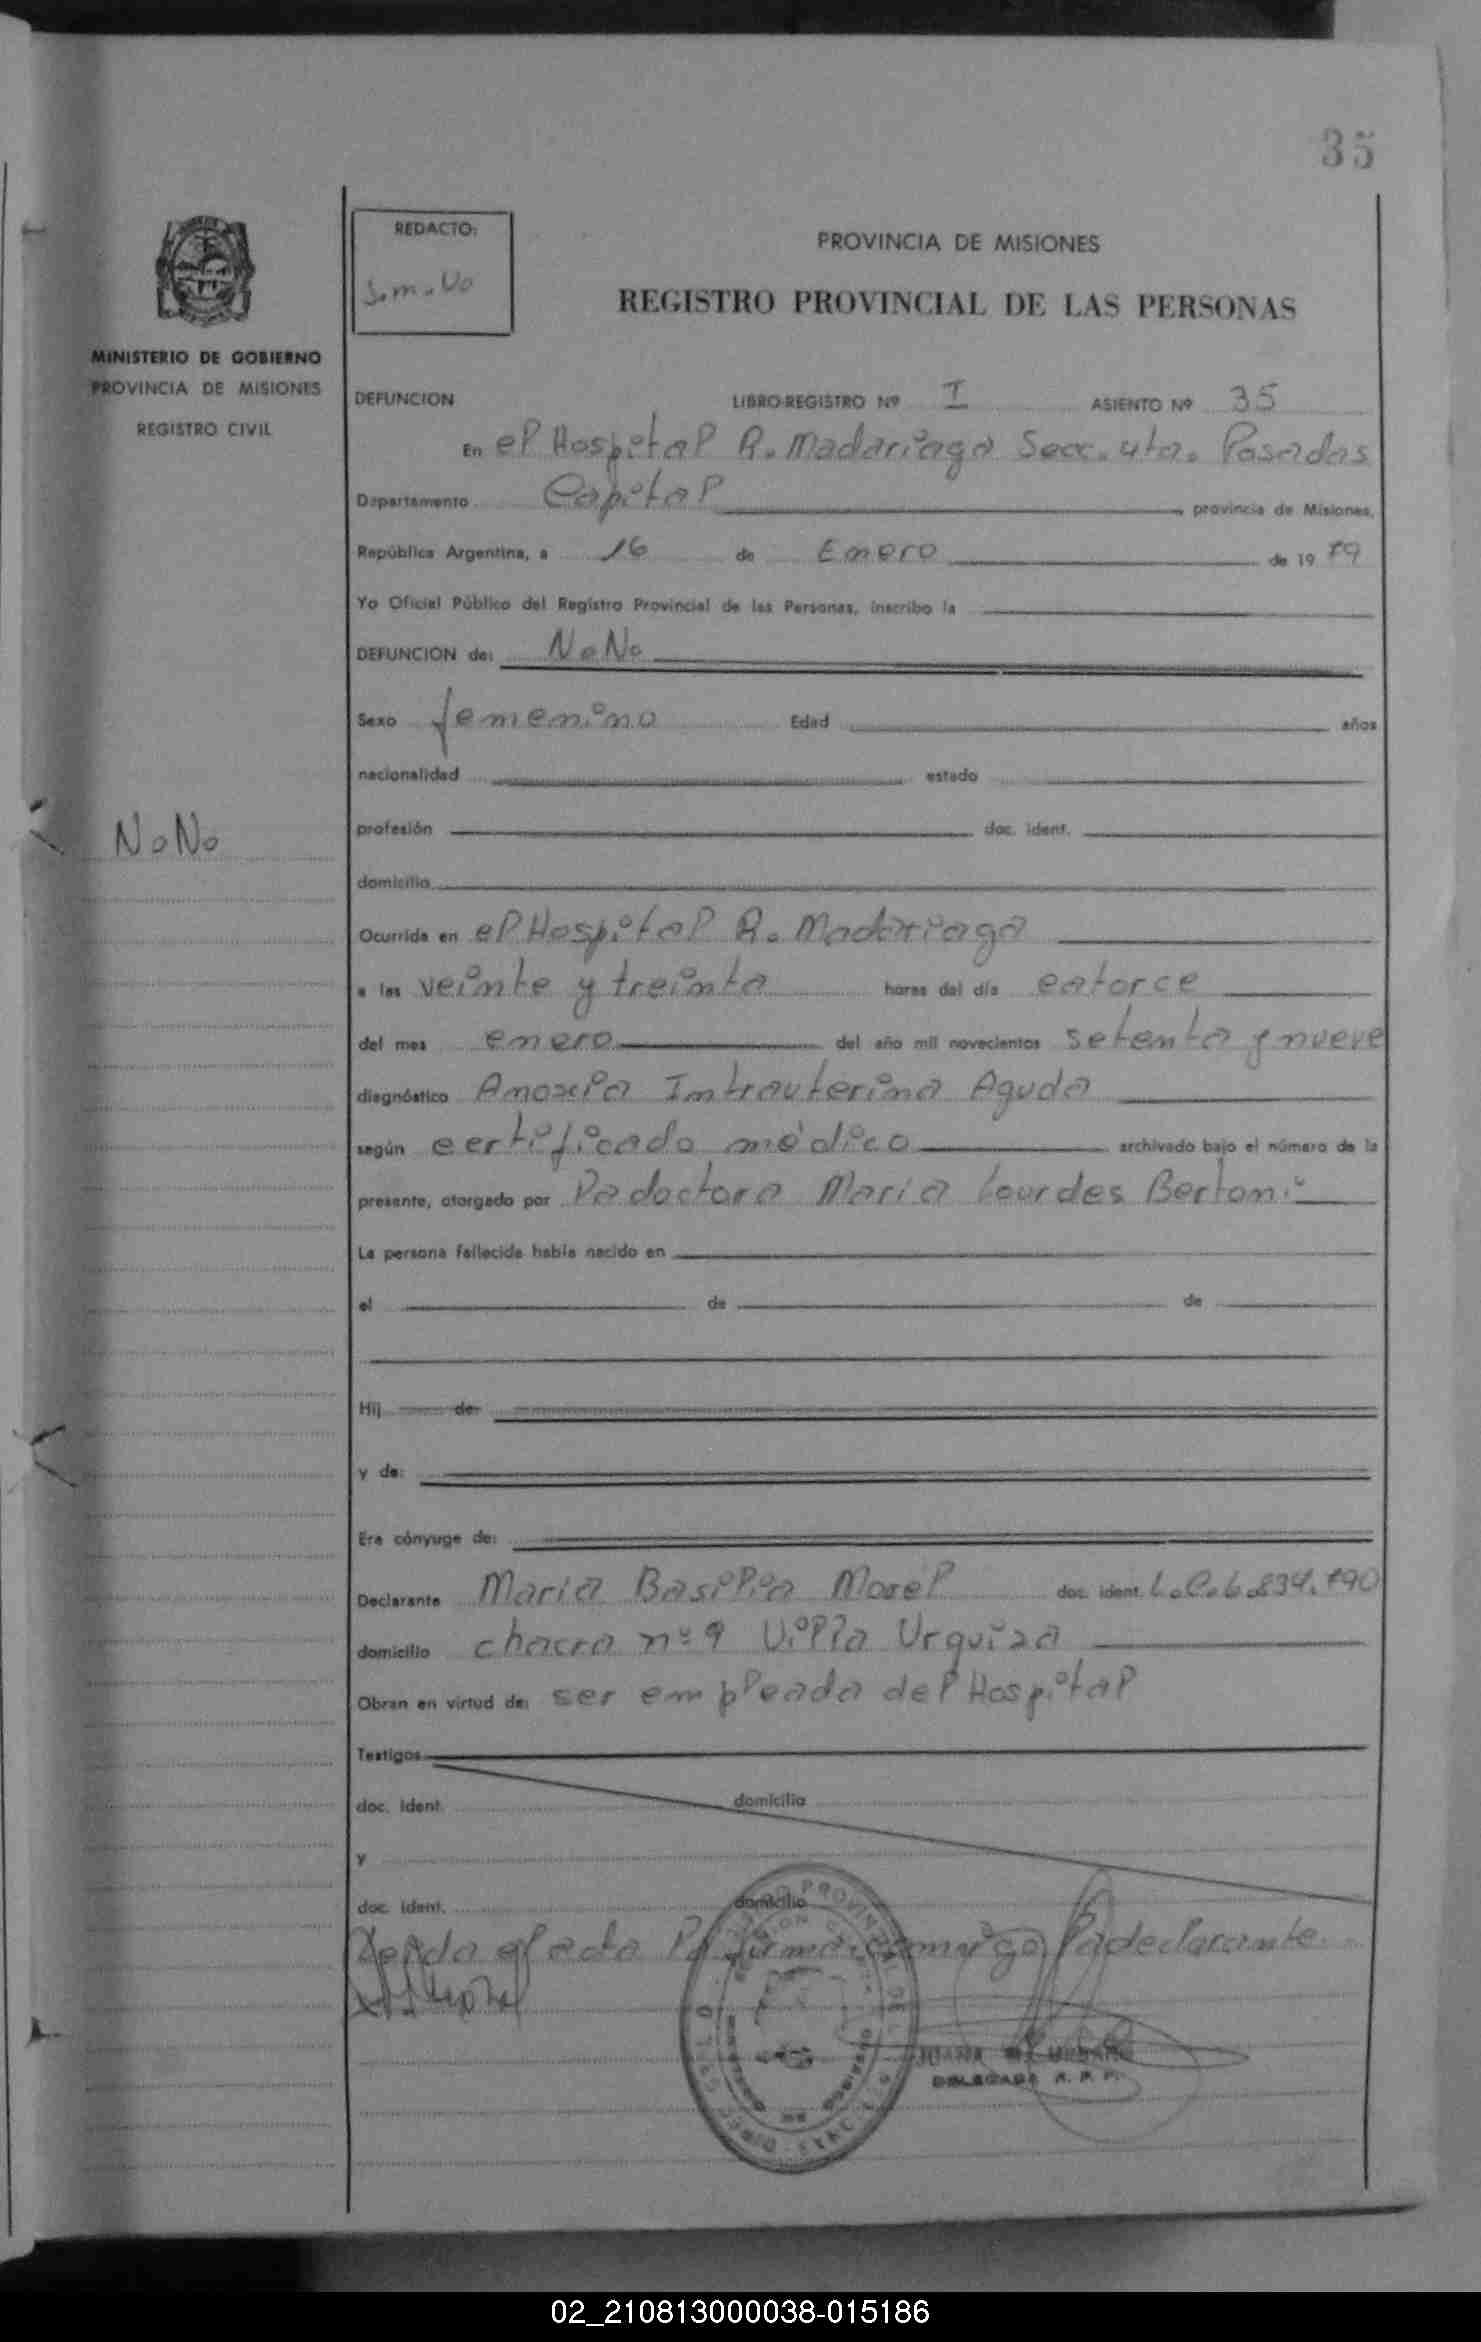 35
REDACTO:
PROVINCIA DE MISIONES
REGISTRO PROVINCIAL DE LAS PERSONAS
MINISTERIO DE GOBIERNO
PROVINCIA DE MISIONES
REGISTRO CIVIL
DEFUNCION LIBRO-REGISTRO Nº I ASIENTO Nº 35
En el Hospital R. Madariaga Secc. 4ta. Posadas
Departamento Capital provincia de Misiones,
República Argentina, a 16 de Enero de 1979
Yo Oficial Público del Registro Provincial de las Personas, inscribo la
DEFUNCION de: NoNo
Sexo femenino Edad años
nacionalidad estado
NoNo
profesión doc. ident.
domicilio
Ocurrida en el Hospital R. Madariaga
a las veinte y treinta horas del día catorce
del mes enero del año mil novecientos setenta y nueve
diagnóstico Anoxia Intrauterina Aguda
según certificado médico archivado bajo el número de la
presente, otorgado por la doctora Maria Lourdes Bertoni
La persona fallecida había nacido en
el de de
Hij de
y de:
Era cónyuge de:
Declarante Maria Basilia Morel doc. ident. L.C.6.834.790
domicilio chacra nº 9 Villa Urquiza
Obran en virtud de: ser empleada del Hospital
Testigos
doc. ident. domicilio
y
doc. ident. domicilio
Leida el acta la firma conmigo la declarante.
JUANA URBANO
DELEGADA R. P. P.
02_210813000038-015186